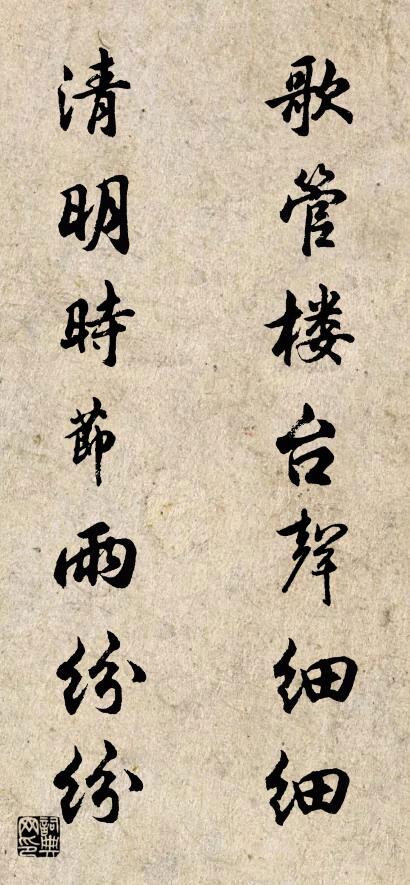 歌管楼台聲细细
清明時節雨纷纷
詞典網印